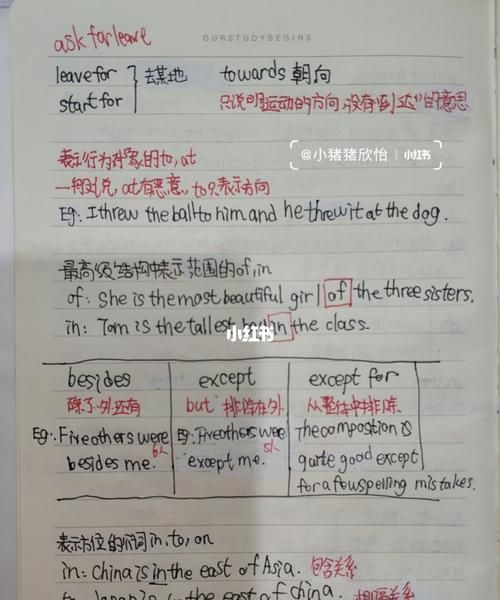 ask for leave
OURSTUDYBEGINS
leave for
start for
去某地
towards 朝向
只说明运动的方向,没有"到达"的意思
@小猪猪欣怡 | 小红书
表示行为对象的to, at
一般说, at有恶意, to只表示方向
Eg: I threw the ball to him and he threw it at the dog.
最高级结构中表示范围的of, in
of: She is the most beautiful girl of the three sisters.
in: Tom is the tallest boy in the class.
小红书
besides except except for
除了外还有 but 排除在外 从整体中排除
Eg: Five others were Eg: Five others were The compostion is
besides me. 6人 except me. 5人 quite good except
for a few spelling mistakes.
表示方位的介词in, to, on
in: China is in the east of Asia. 包含关系
to: Japan is to the east of China. 相隔关系